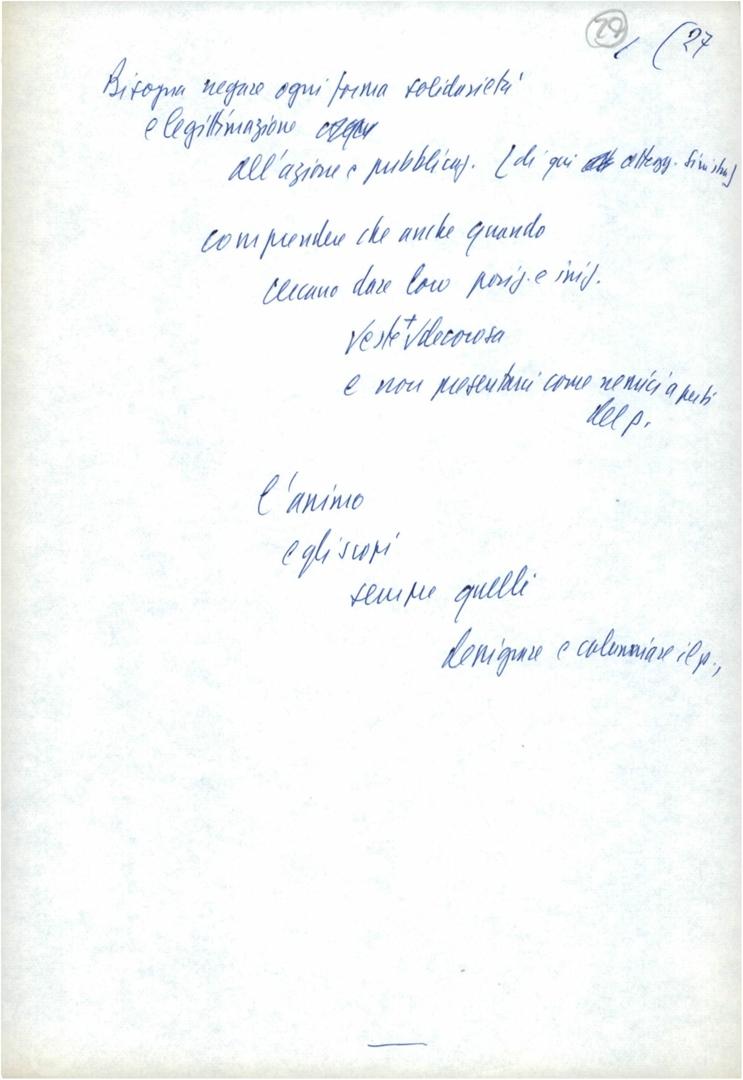 29 (27
Bisogna negare ogni forma solidarietà
e legittimazione
all'azione e pubblicaz. (di qui attegg. sinistra)
comprendere che anche quando
cercano dare loro posiz. e iniz.
veste + decorosa
e non presentarsi come nemici aperti
del p.
l'animo
e gli scopi
sempre quelli
denigrare e calunniare il p.,